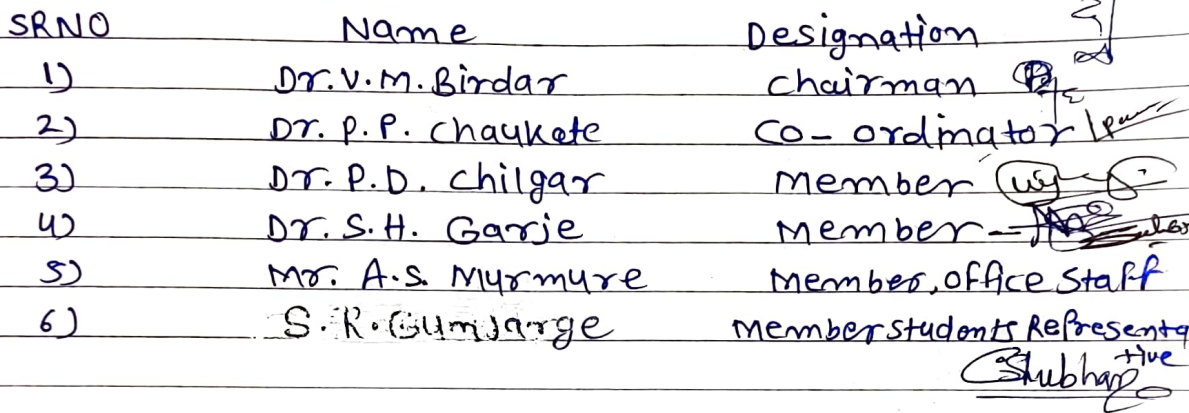 SRNO Name Designation
1) Dr. V. M. Birdar Chairman
2) Dr. P. P. Chaukate Co-ordinator
3) Dr. P. D. Chilgar Member
4) Dr. S. H. Garje Member
5) Mr. A. S. Murmure Member, Office Staff
6) S. R. Member Students Representa
tive
Shubham